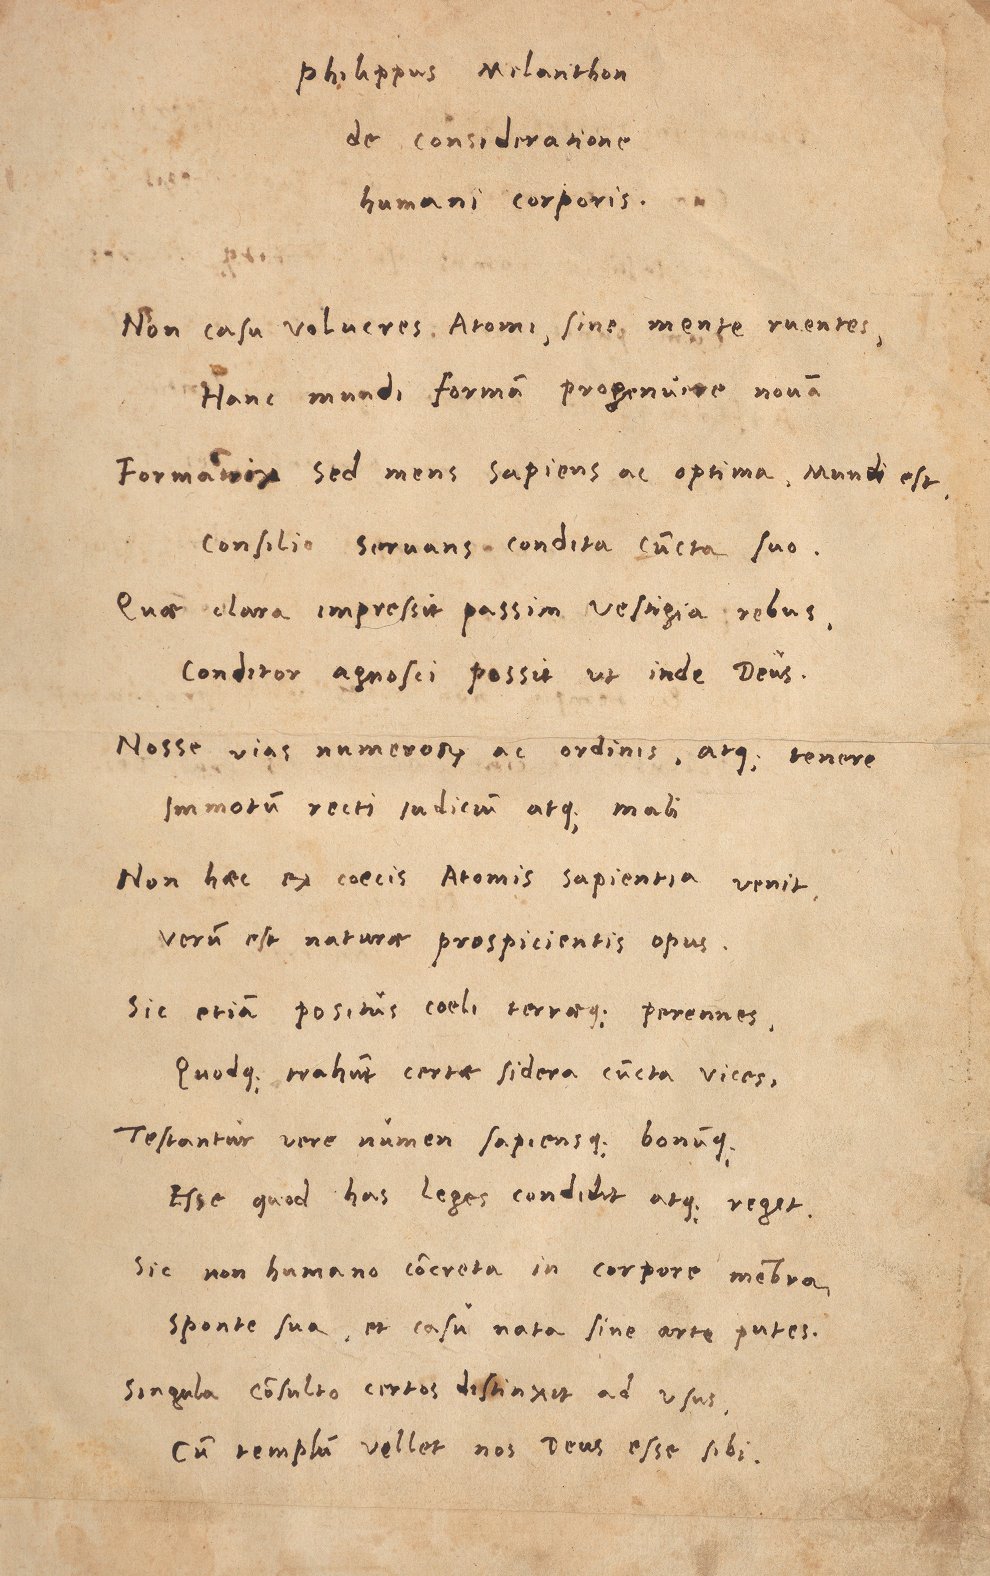 Philippus Melanthon
de consideratione
humani corporis.
Non casu volucres Atomi, sine mente ruentes,
Hanc mundi formā progenuere nouā
Formatrix Sed mens sapiens ac optima, Mundi est,
Consilio seruans condita cūcta suo.
Quæ clara impressit passim vestigia rebus,
Conditor agnosci possit ut inde Deus.
Nosse vias numeros ac ordinis, atq; tenere
Immotū recti iudiciū atq; mali
Non hæc ex coecis Atomis sapientia venit,
Verū est naturæ prospicientis opus.
Sic etiā positus coeli terræq; perennes,
Quodq; trahūt certæ sidera cūcta vices,
Testantur vere numen sapiensq; bonūq;
Esse quod has leges condidit atq; reget.
Sic non humano cōcreta in corpore mēbra,
Sponte sua, et casu nata sine arte putes.
Singula cōsulto certos distinxit ad vsus,
Cū templū vellet nos Deus esse sibi.